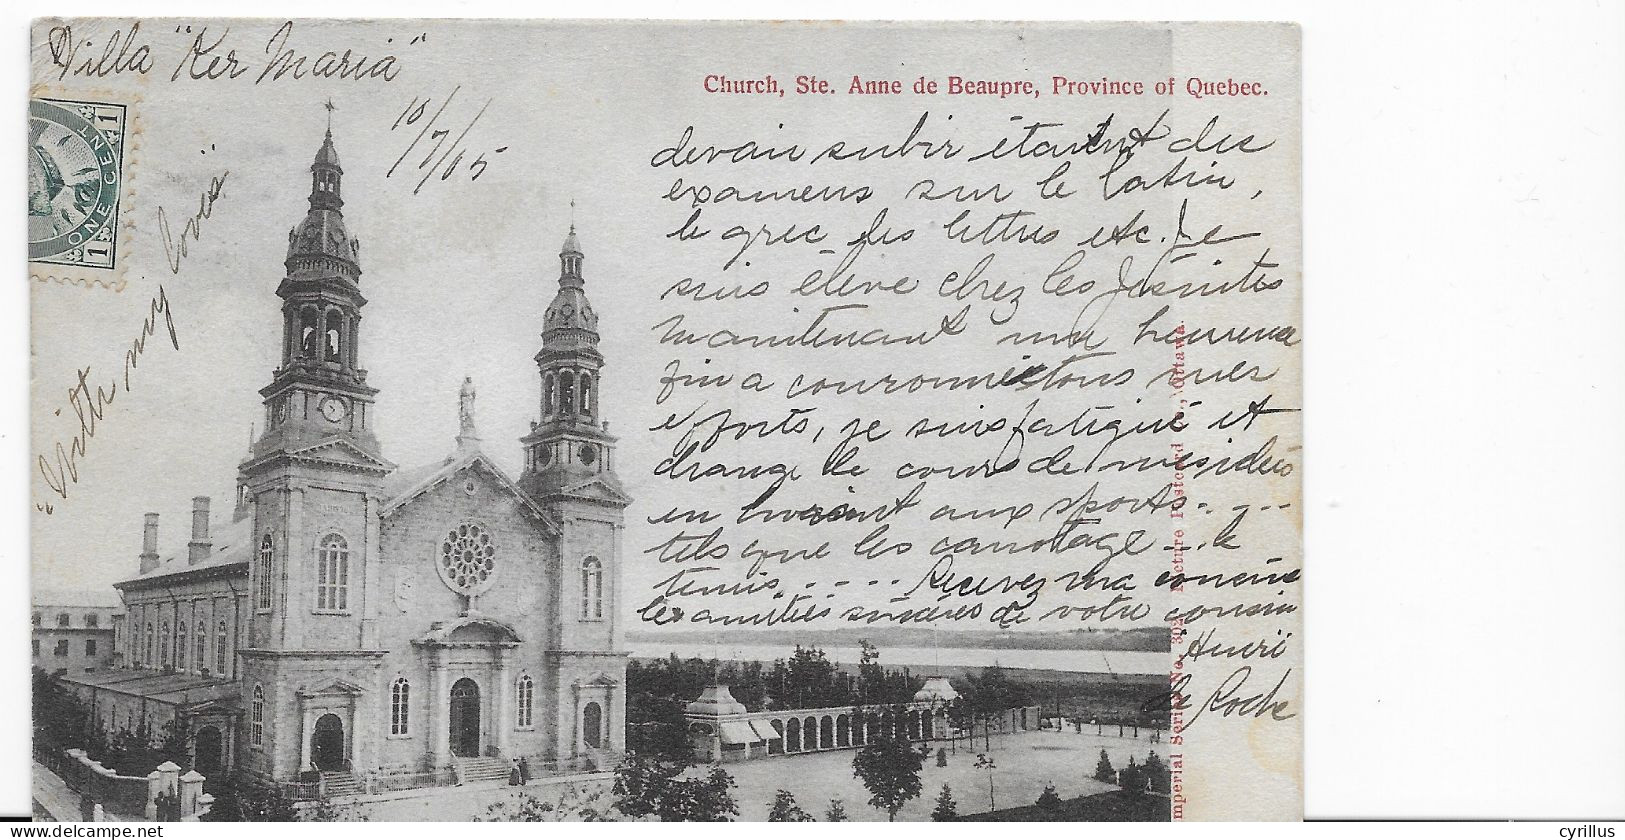 Villa "Ker Maria"
10/7/05
ONE CENT
1 1
"With my love"
Church, Ste. Anne de Beaupre, Province of Quebec.
devais subir étant des
examens sur le latin,
le grec les lettres etc. Je
suis élève chez les Jésuites
maintenant une heureuse
fin a couronné tous mes
efforts, je suis fatigué et
change le cours de mes idées
en aux sports....
tels que les canotage... le
tennis..... Recevez ma cousine
les amitiés sincères de votre cousin
Henri
de Roche
Imperial Series No. 302 Picture Postcard Co., Ottawa.
cyrillus